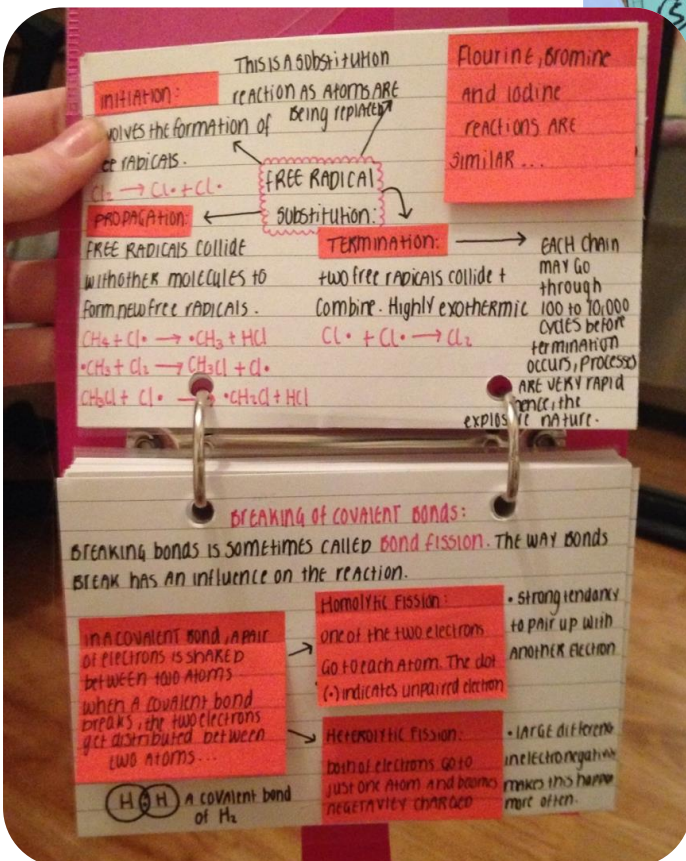 THIS IS A SUBSTITUTION
REACTION AS ATOMS ARE
BEING REPLACED
INITIATION:
VOLVES THE FORMATION OF
EE RADICALS.
Cl₂ → Cl• + Cl•
FREE RADICAL
SUBSTITUTION:
FLOURINE, BROMINE
AND IODINE
REACTIONS ARE
SIMILAR ...
PROPAGATION:
FREE RADICALS COLLIDE
WITH OTHER MOLECULES TO
FORM NEW FREE RADICALS.
CH₄ + Cl• → •CH₃ + HCl
•CH₃ + Cl₂ → CH₃Cl + Cl•
CH₃Cl + Cl• → •CH₂Cl + HCl
TERMINATION:
TWO FREE RADICALS COLLIDE +
COMBINE. HIGHLY EXOTHERMIC
Cl• + Cl• → Cl₂
EACH CHAIN
MAY GO
THROUGH
100 TO 10,000
CYCLES BEFORE
TERMINATION
OCCURS, PROCESSES
ARE VERY RAPID
HENCE, THE
EXPLOSIVE NATURE.
BREAKING OF COVALENT BONDS:
BREAKING BONDS IS SOMETIMES CALLED BOND FISSION. THE WAY BONDS
BREAK HAS AN INFLUENCE ON THE REACTION.
IN A COVALENT BOND, A PAIR
OF ELECTRONS IS SHARED
BETWEEN TWO ATOMS
WHEN A COVALENT BOND
BREAKS, THE TWO ELECTRONS
GET DISTRIBUTED BETWEEN
TWO ATOMS...
HOMOLYTIC FISSION:
ONE OF THE TWO ELECTRONS
GO TO EACH ATOM. THE DOT
(•) INDICATES UNPAIRED ELECTRON
• STRONG TENDANCY
TO PAIR UP WITH
ANOTHER ELECTRON
HETEROLYTIC FISSION:
BOTH OF ELECTRONS GO TO
JUST ONE ATOM AND BECOMES
NEGETAVITY CHARGED
• LARGE DIFFERENC
IN ELECTRONEGATIVI
MAKES THIS HAPPEN
MORE OFTEN.
H H
A COVALENT BOND
OF H₂